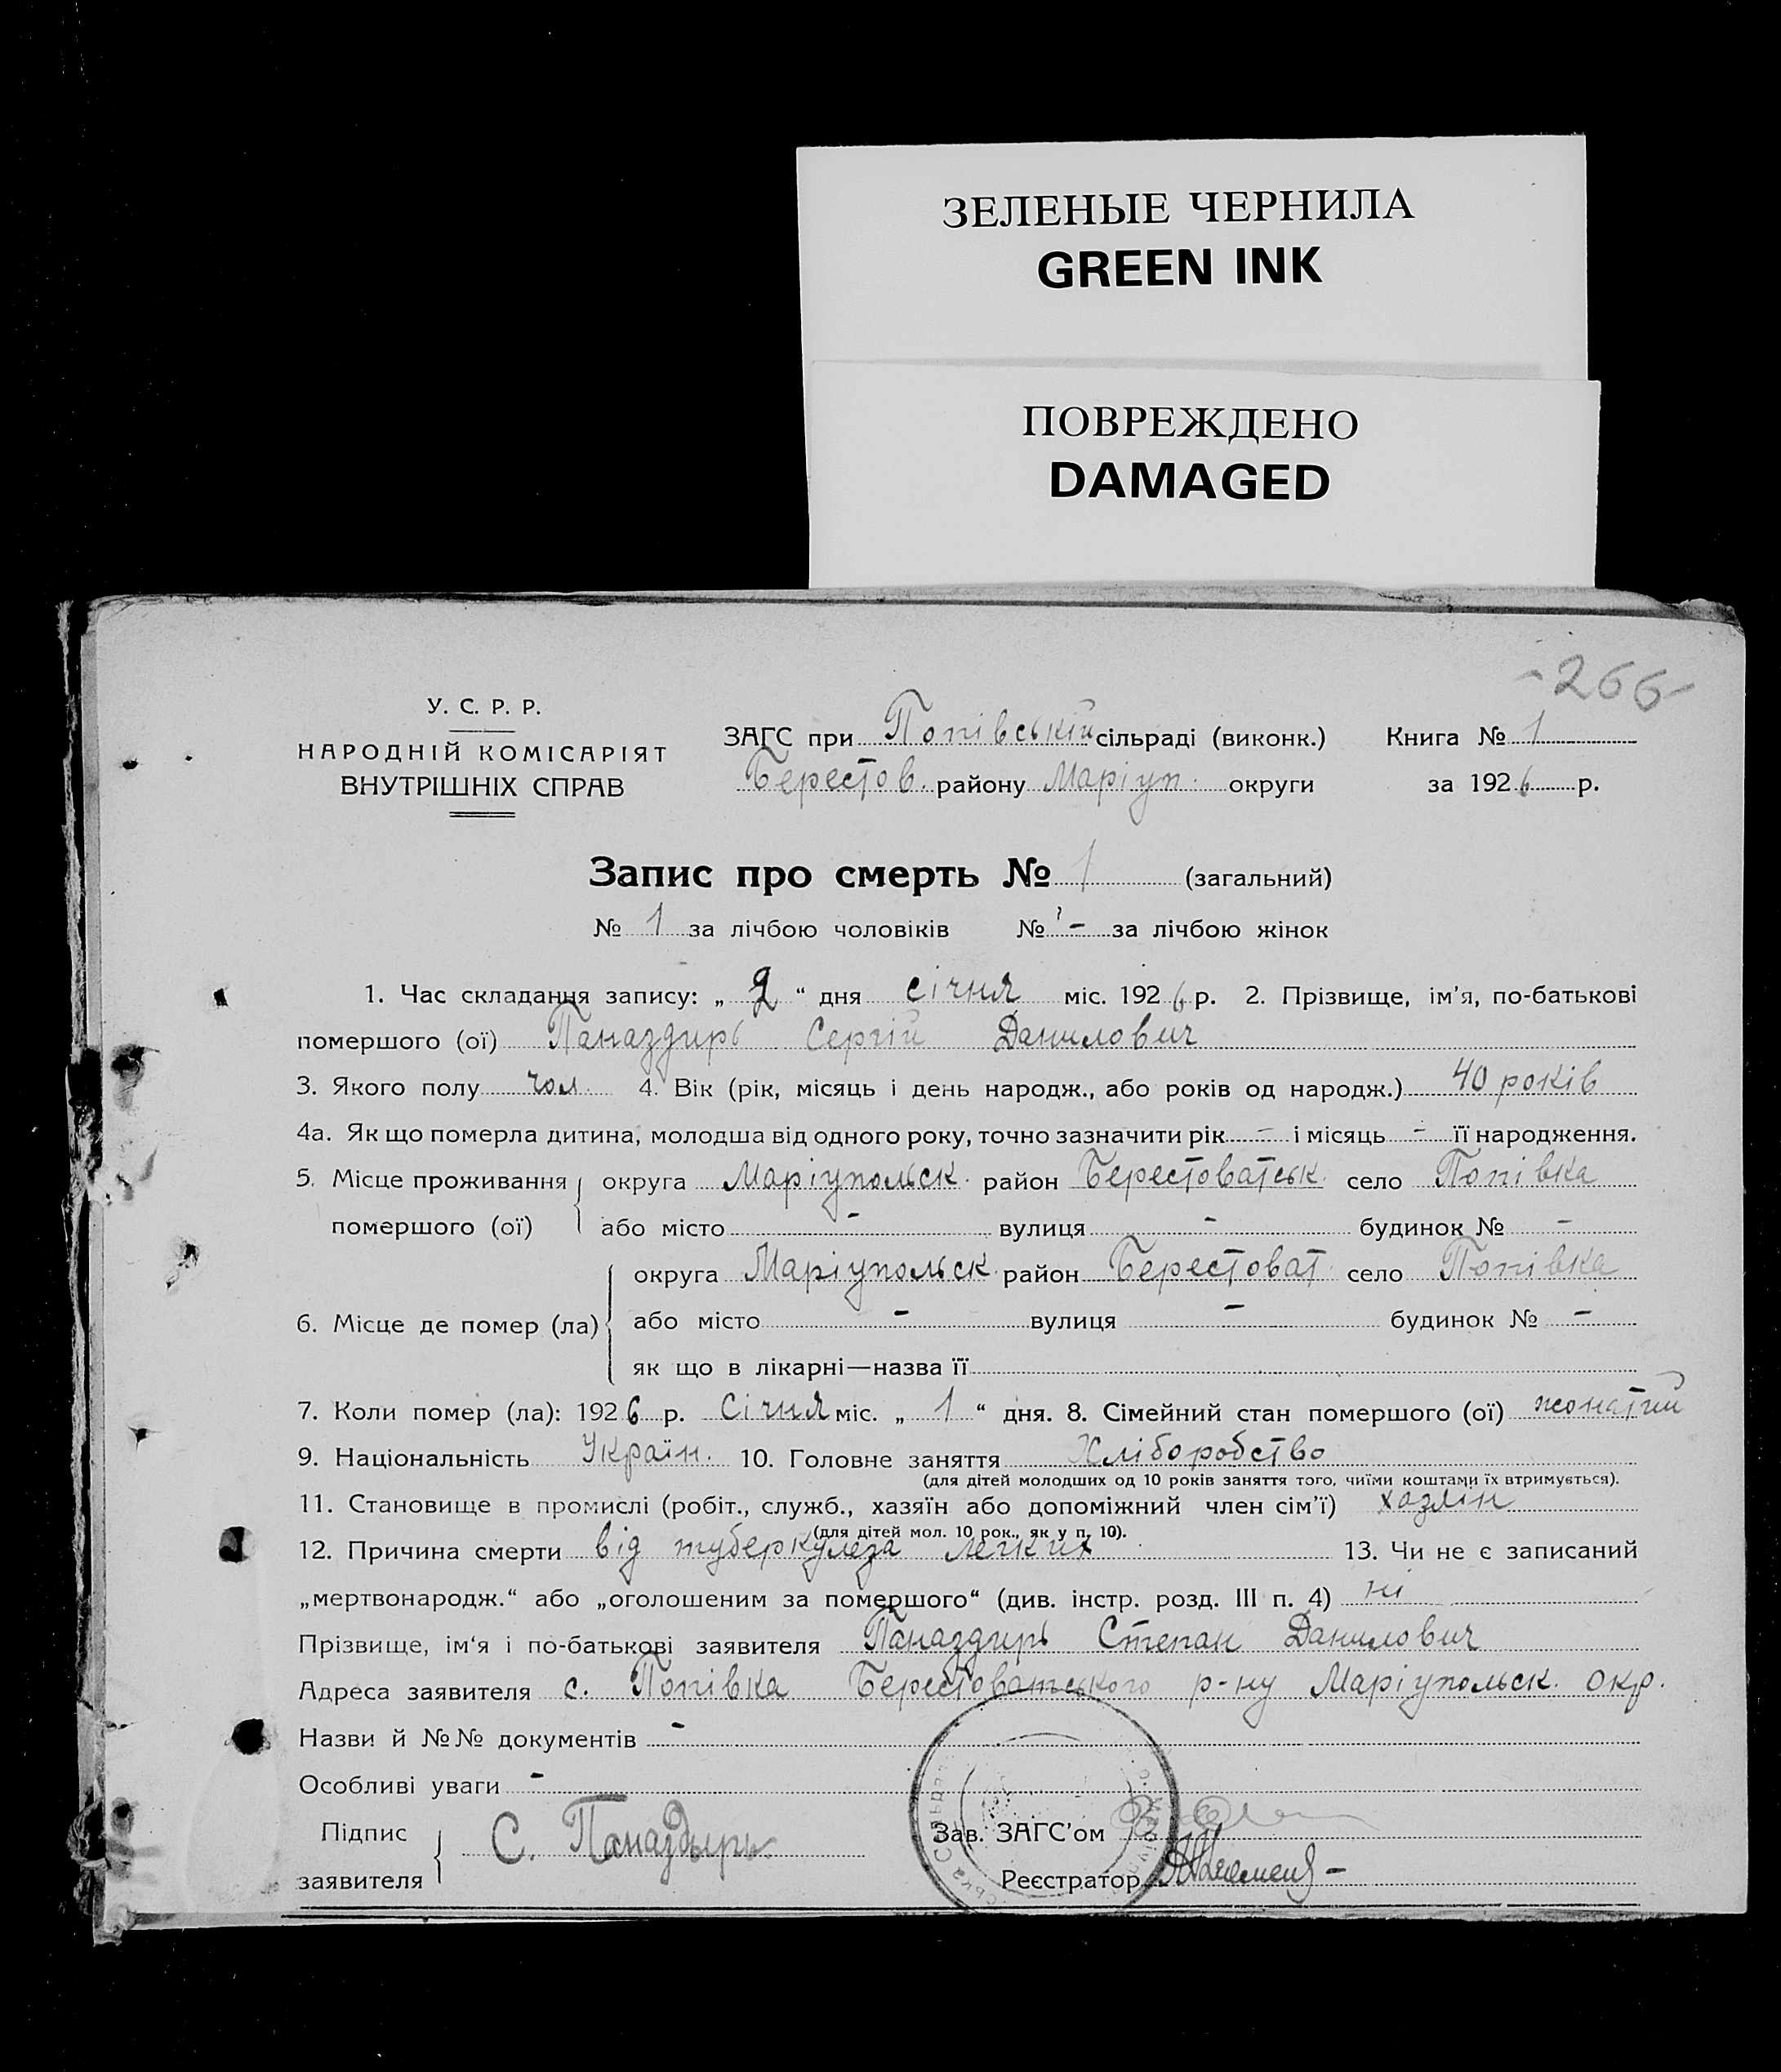 ЗЕЛЕНЫЕ ЧЕРНИЛА
GREEN INK
ПОВРЕЖДЕНО
DAMAGED
-266-
У. С. Р. Р.
НАРОДНІЙ КОМІСАРІЯТ
ВНУТРІШНІХ СПРАВ
ЗАГС при Попівській сільраді (виконк.) Книга № 1
Берестов. району Маріуп. округи за 1926 р.
Запис про смерть № 1 (загальний)
№ 1 за лічбою чоловіків № - за лічбою жінок
1. Час складання запису: „ 2 “ дня січня міс. 1926 р. 2. Прізвище, ім'я, по-батькові
помершого (ої) Паназдирь Сергій Данилович
3. Якого полу чол. 4. Вік (рік, місяць і день народж., або років од народж.) 40 років
4а. Як що померла дитина, молодша від одного року, точно зазначити рік - і місяць - її народження.
5. Місце проживання округа Маріупольск. район Берестоватськ. село Попівка
помершого (ої) або місто - вулиця - будинок № -
округа Маріупольск. район Берестоват. село Попівка
6. Місце де помер (ла) або місто - вулиця - будинок № -
як що в лікарні—назва її
7. Коли помер (ла): 1926 р. Січня міс. „ 1 “ дня. 8. Сімейний стан помершого (ої) жонатий
9. Національність Україн. 10. Головне заняття Хліборобство
(для дітей молодших од 10 років заняття того, чиїми коштами їх втримується).
11. Становище в промислі (робіт., служб., хазяїн або допоміжний член сім'ї) хазяїн
(для дітей мол. 10 рок., як у п. 10).
12. Причина смерти від туберкулеза легких 13. Чи не є записаний
„мертвонародж.“ або „оголошеним за помершого“ (див. інстр. розд. III п. 4) ні
Прізвище, ім'я і по-батькові заявителя Паназдирь Степан Данилович
Адреса заявителя с. Попівка Берестоватського р-ну Маріупольск. окр.
Назви й №№ документів -
Особливі уваги -
Підпис
заявителя С. Паназдырь
Зав. ЗАГС'ом
Реєстратор